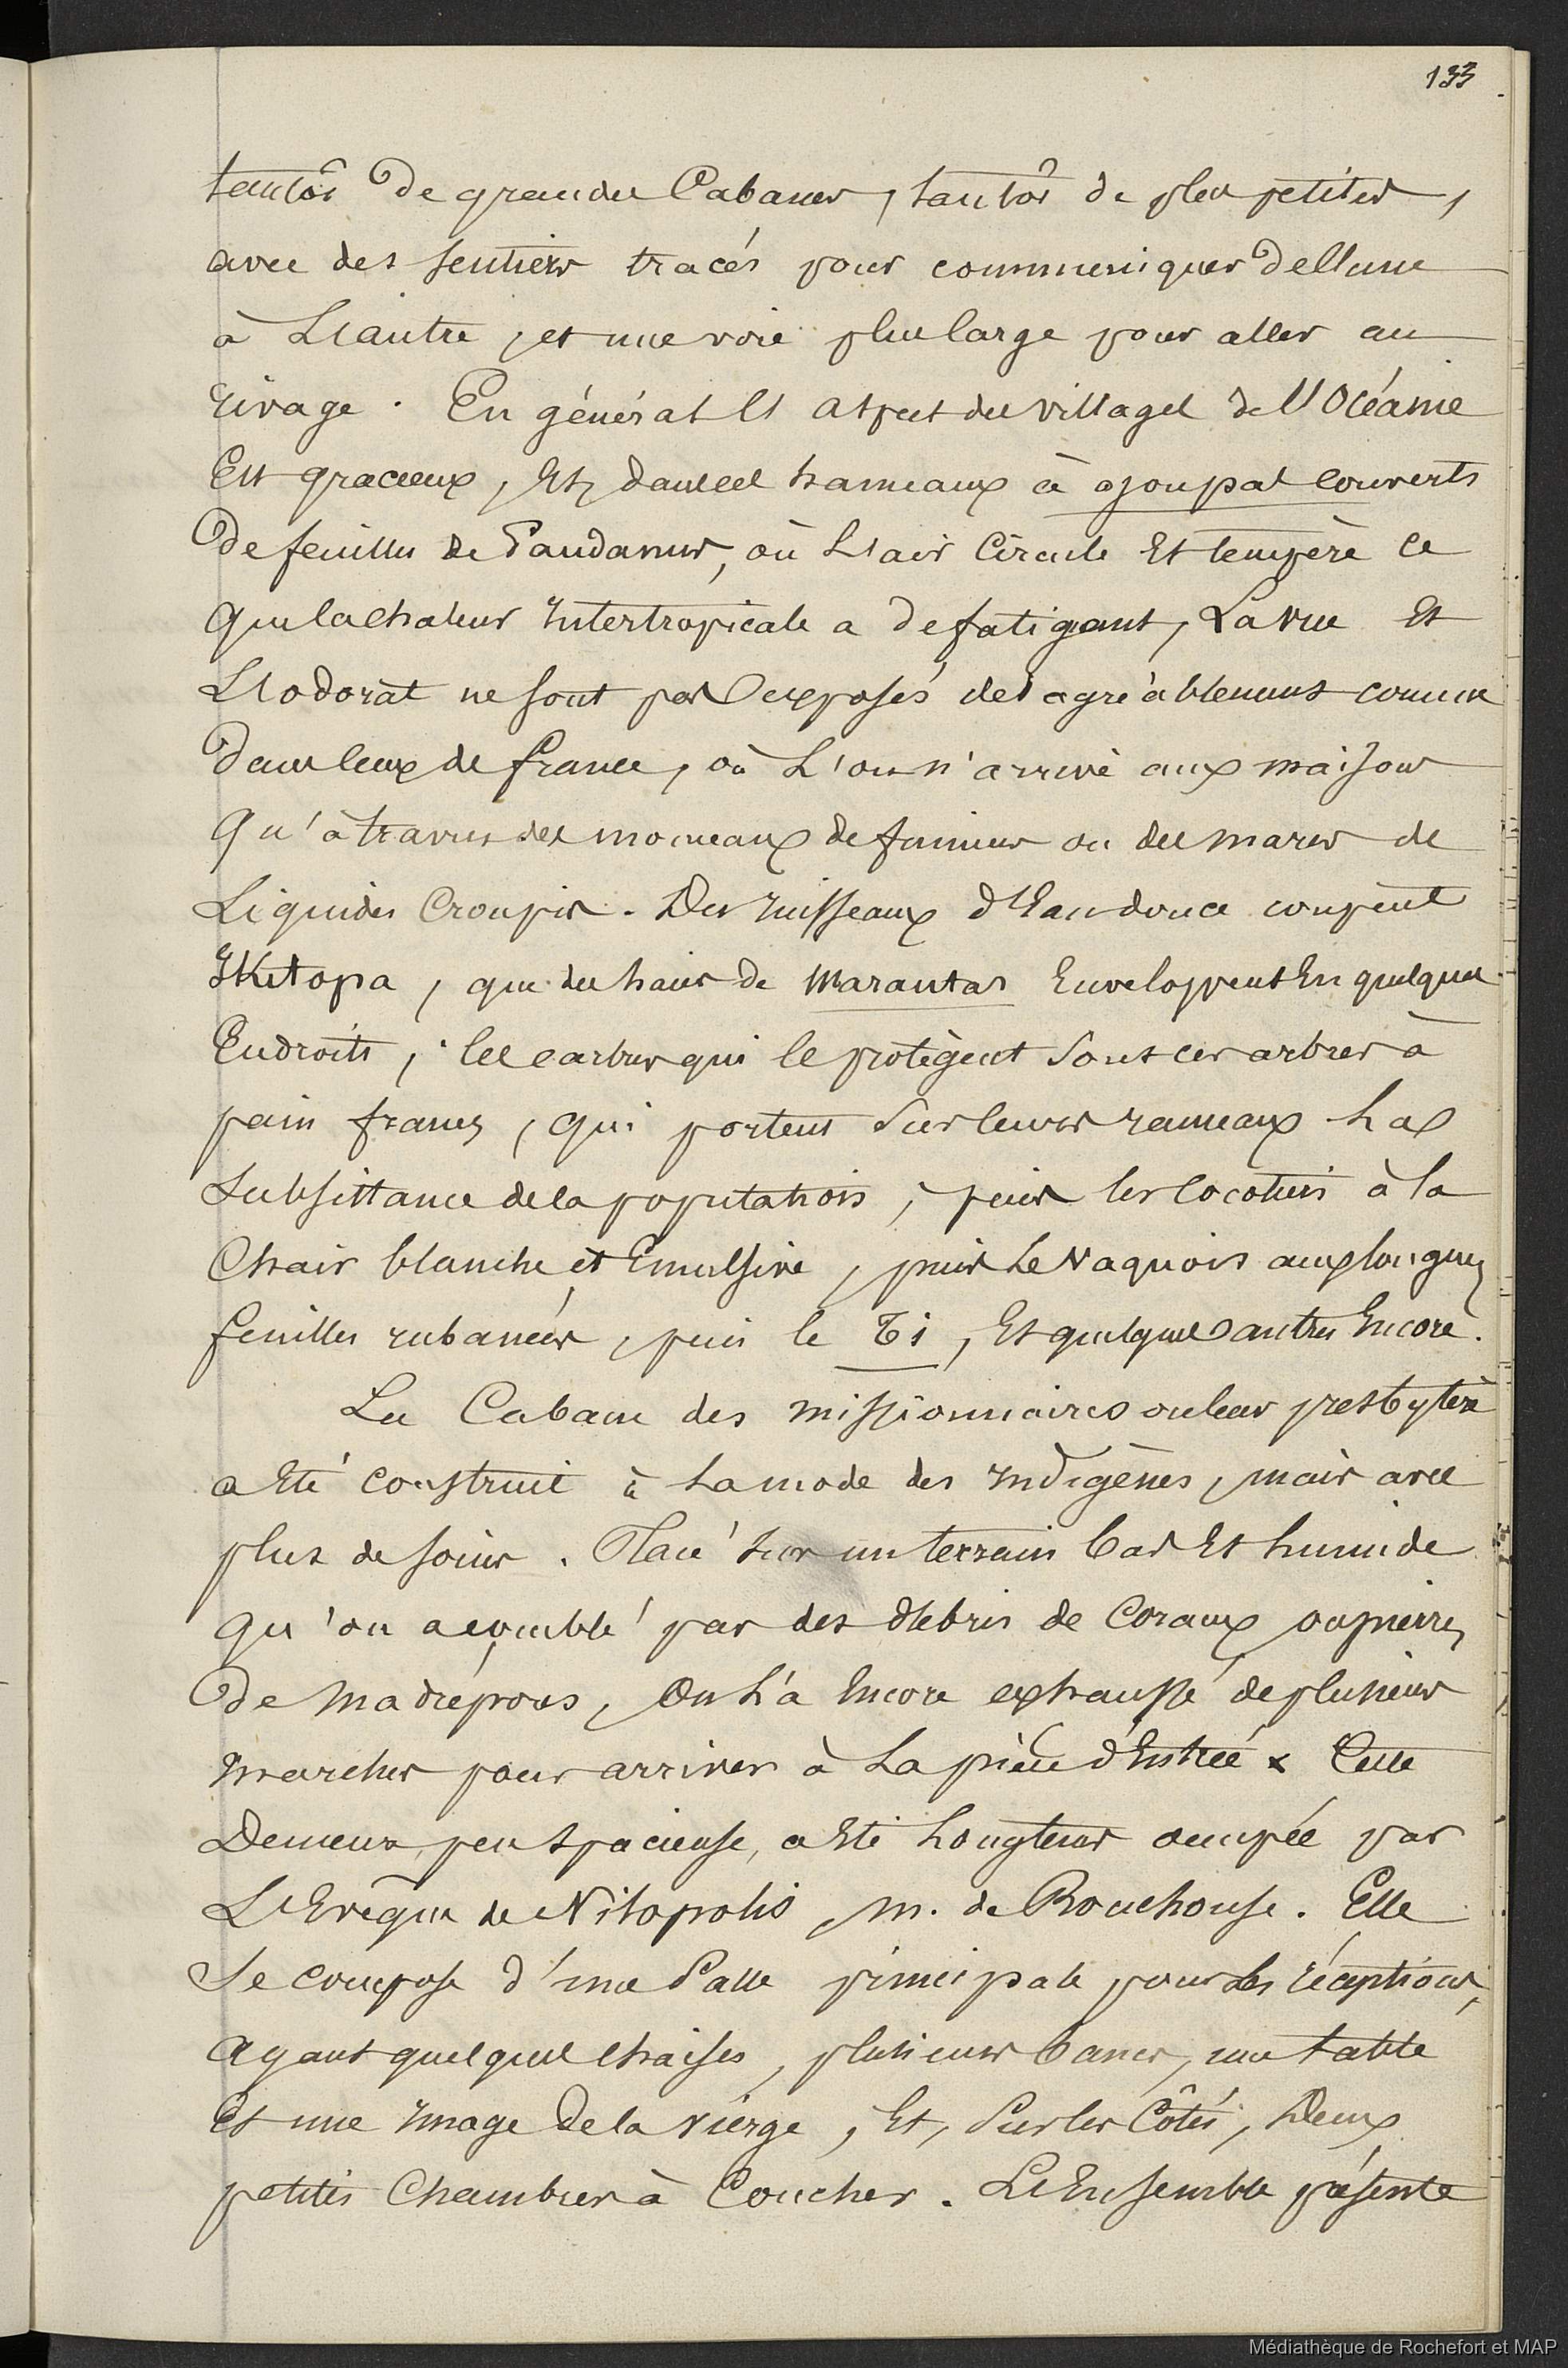 133
tantôt de grandes Cabanes, tantôt de plus petites,
avec des sentiers tracés pour communiquer de l'une
à L'autre, et une voie plus large pour aller au
rivage. En général l'aspect des villages de l'Océanie
Est gracieux, Et, dans ces hameaux à ajoupas couverts
De feuilles de Pandanus, où L'air Circule Et tempère ce
Que la chaleur Intertropicale a de fatigant, La vue Et
L'odorat ne sont pas exposés désagréablement comme
Dans ceux de france, où L'on n'arrive aux maisons
Qu'à travers des monceaux de fumier ou des mares de
Liquides Croupis. Des ruisseaux d'Eau douce coupent
Kitopa, que des haies de Marantas Enveloppent En quelques
Endroits, les arbres qui le protègent sont ces arbres à
pain francs, qui portent sur leurs rameaux La
subsistance de la population, puis les Cocotiers à la
Chair blanche et Emulsive, puis Le Vaquois aux longues
feuilles rubanées, puis le Ti, Et quelques autres Encore.
La Cabane des missionnaires ou leur presbytère
a Eté construit à La mode des Indigènes, mais avec
plus de soins. Placé sur un terrain bas Et humide
qu'on a comblé par des débris de Coraux ou pierres
De Madrépores, On L'a Encore exhaussé de plusieurs
marches pour arriver à La pièce d'Entrée x Cette
Demeure, peu spacieuse, a Eté Longtems occupée par
L'Evêque de Nilopolis, M. de Rouchouse. Elle
se compose d'une salle principale pour Les réceptions,
Ayant quelques chaises, plusieurs bancs, une table
Et une Image de la vierge, Et, sur les Côtés, Deux
petites Chambres à Coucher. L'Ensemble présente
Médiathèque de Rochefort et MAP